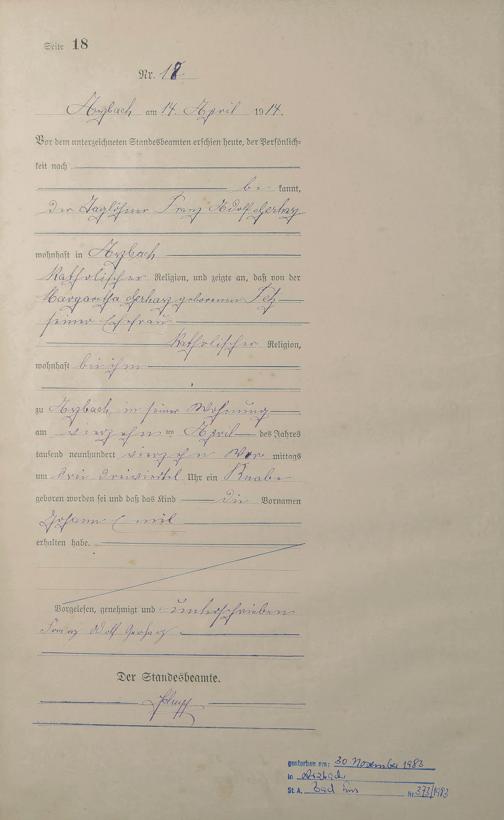 Seite 18
Nr. 18.
Arzbach am 14. April 1914.
Vor dem unterzeichneten Standesbeamten erschien heute, der Persönlich-
keit nach
be kannt,
der Taglöhner Franz Adolf Gerharz
wohnhaft in Arzbach
katholischer Religion, und zeigte an, daß von der
Margaretha Gerharz geborenen
seiner Ehefrau
katholischer Religion,
wohnhaft bei ihm
zu Arzbach in seiner Wohnung
am vierzehn ten April des Jahres
tausend neunhundert vierzehn Vor mittags
um drei dreiviertel Uhr ein Knabe
geboren worden sei und daß das Kind die Vornamen
Johann Emil
erhalten habe.
Vorgelesen, genehmigt und unterschrieben
Franz Adolf Gerharz
Der Standesbeamte.
gestorben am: 30 November 1983
in Arzbach
St.A. Bad Ems Nr. 373/1983